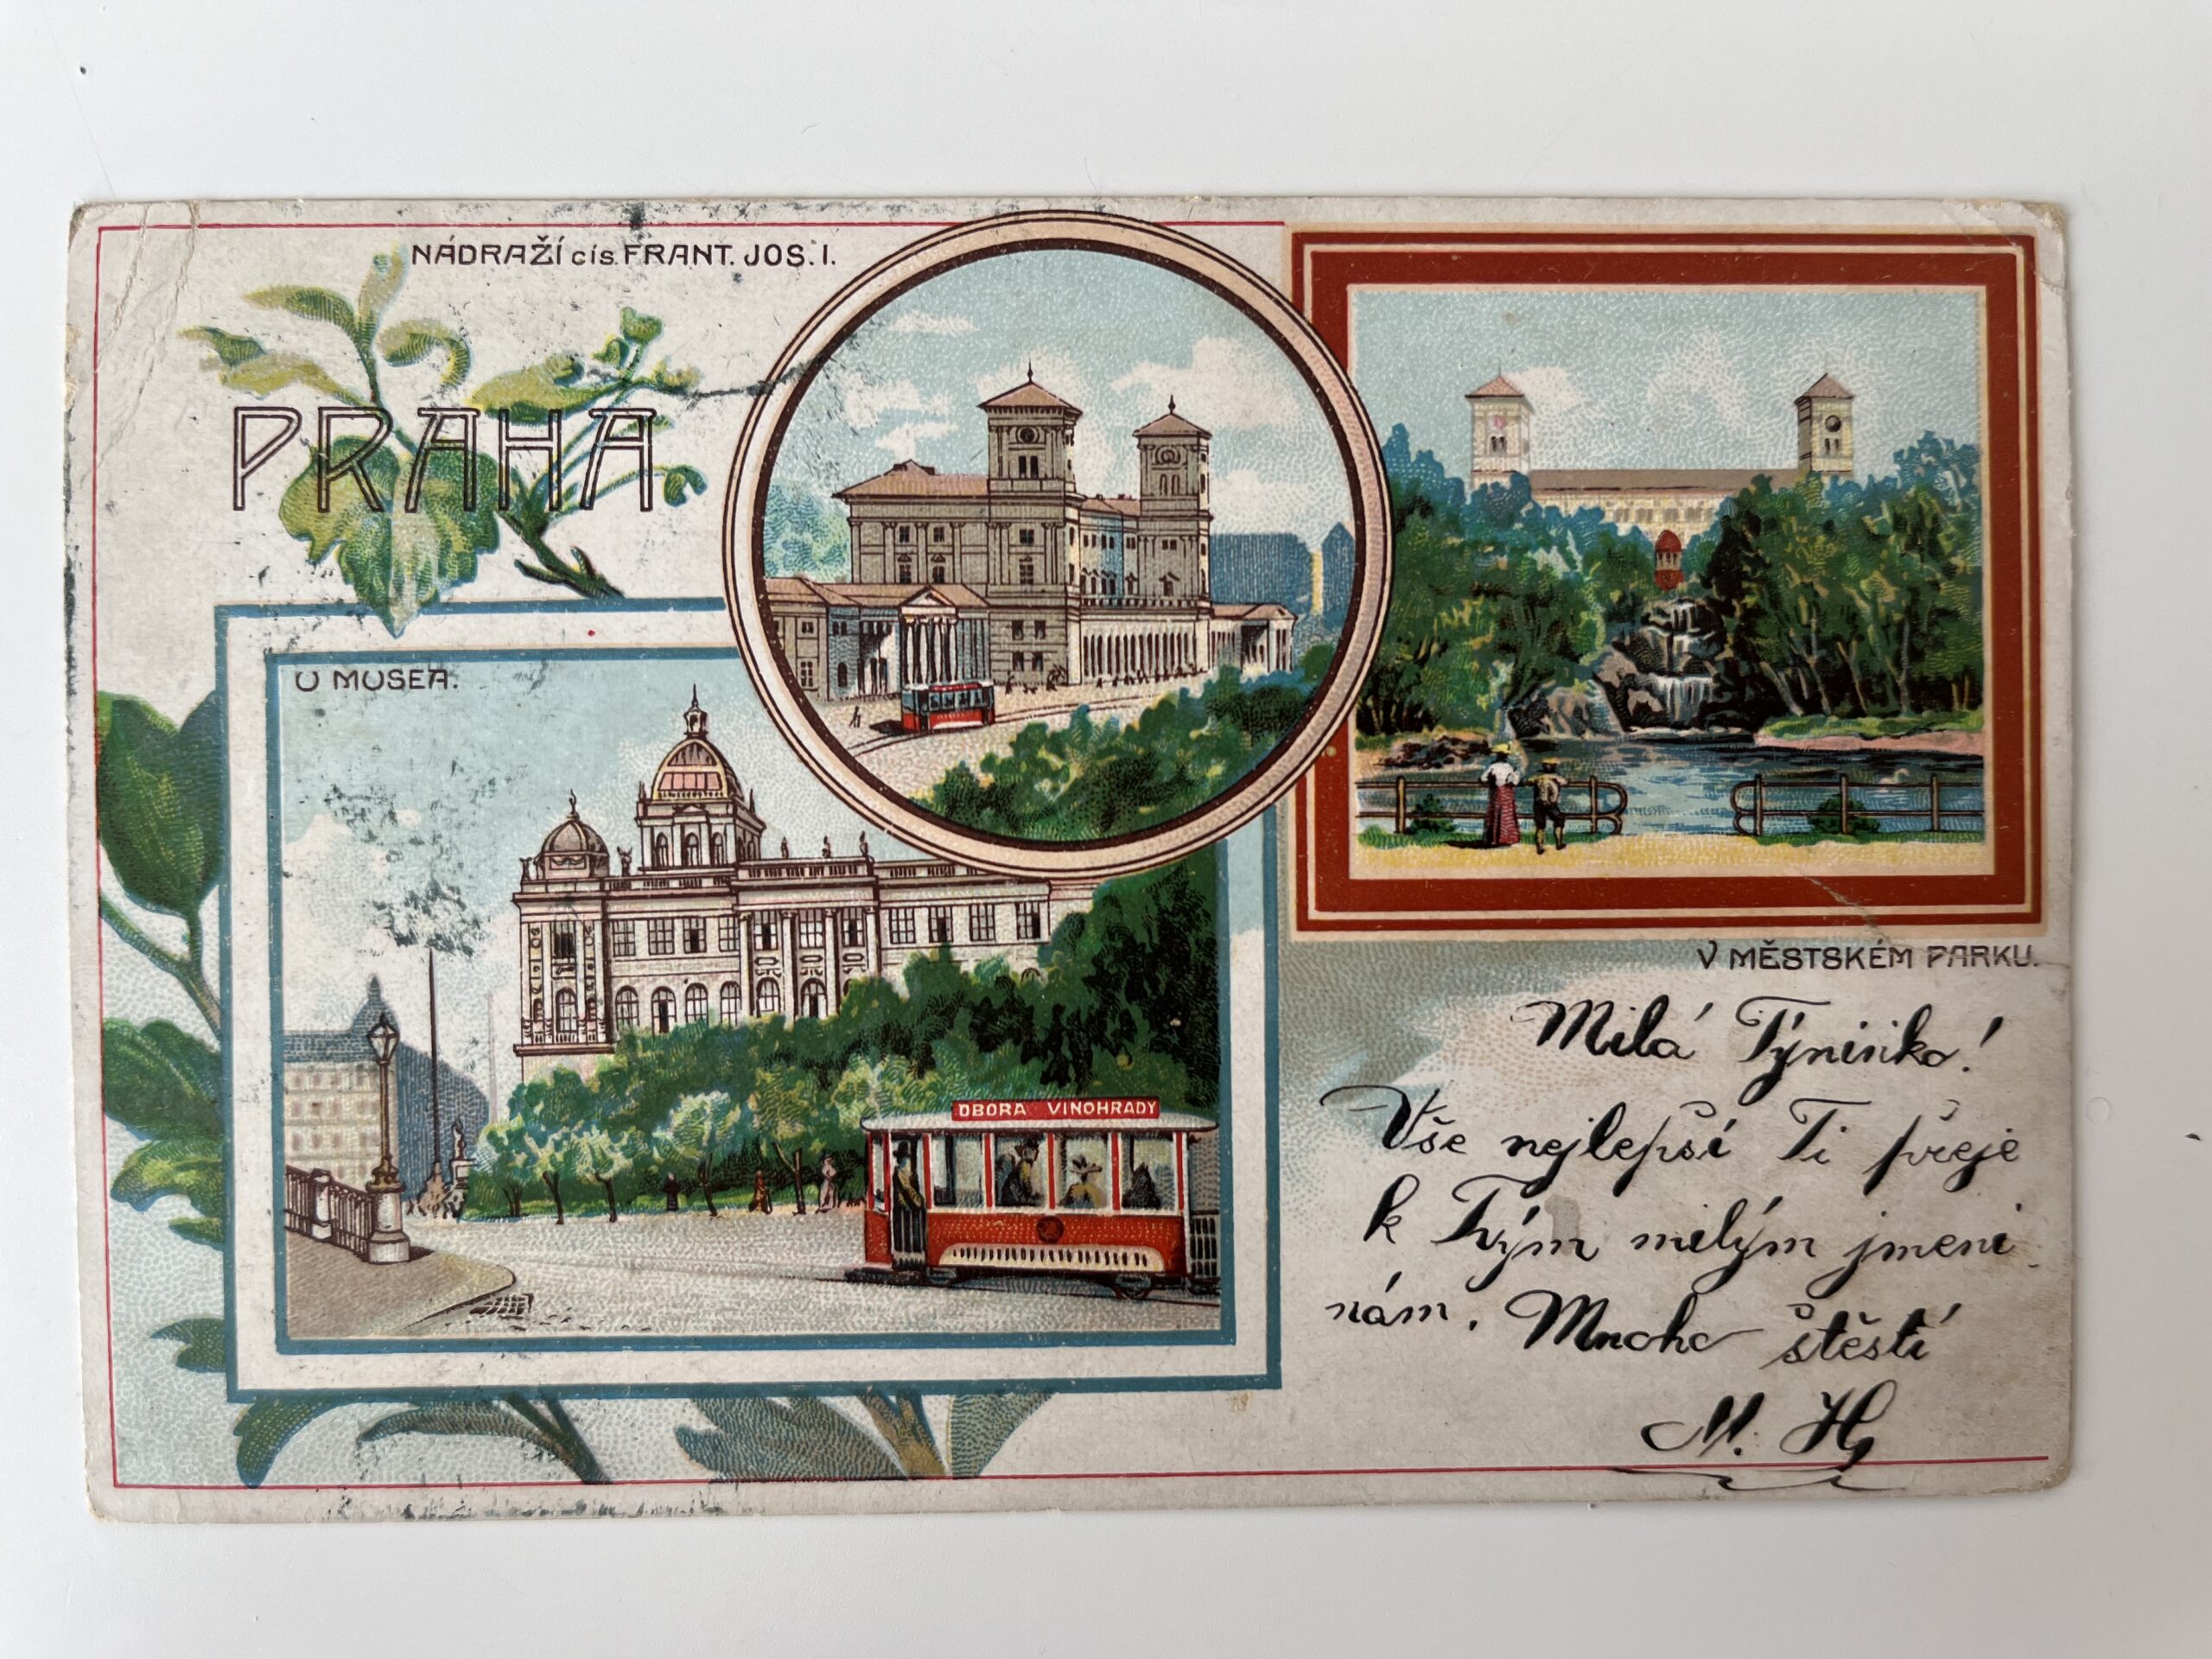 NÁDRAŽÍ cís. FRANT. JOS. I.
PRAHA
U MUSEA.
OBORA VINOHRADY
V MĚSTSKÉM PARKU.
Milá Týninko!
Vše nejlepší Ti přeje
k Tvým milým jmeni
nám. Mnoho štěstí
M. H.